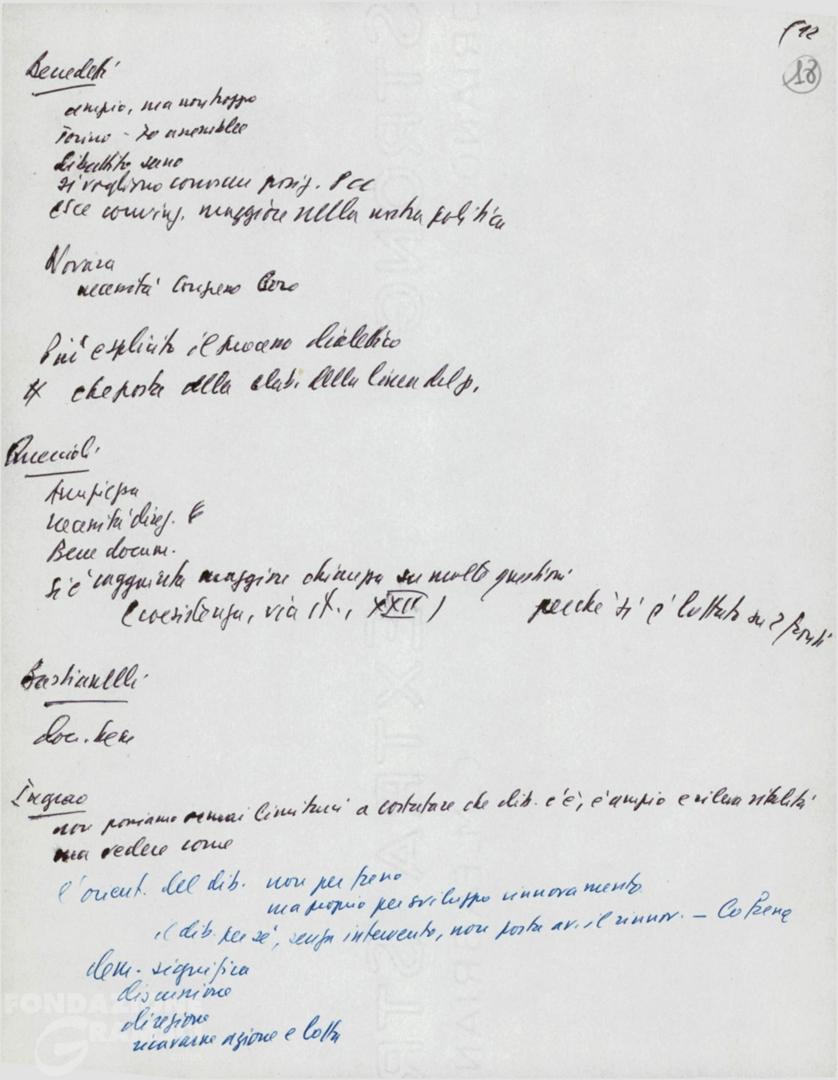 18
Benedetti
ampio, ma non troppo
Torino - 70 assemblee
dibattito sano
si vogliono conoscere posiz. PCC
esce convinz. maggiore nella nostra politica
Novara
necessità Congresso
Più esplicito il processo dialettico
che porta della elab. della linea del p.
necessità direz.
Bene docum.
Si è raggiunta maggiore chiarezza su molte questioni
(coesistenza, via it., XXII) perché si è lottato su 2 fronti
Bastianelli
doc. bene
Ingrao
non possiamo ormai limitarci a costatare che dib. c'è, è ampio e rileva vitalità
ma vedere come
l'orient. del dib. non per freno
ma proprio per sviluppo rinnovamento
il dib. per sé, senza intervento, non porta av. il rinnov. - Lo frena
dem. significa
discussione
direzione
ricavarne azione e lotta
FONDAZIONE
GRAMSCI